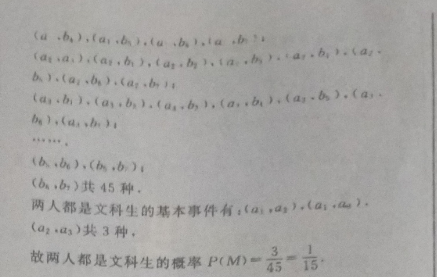 (a₂,a₃),(a₂,b₁),(a₂,b₂),(a₂,b₃),(a₂,b₄),(a₂,
b₅),(a₂,b₆),(a₂,b₇);
(a₃,b₁),(a₃,b₂),(a₃,b₃),(a₃,b₄),(a₃,b₅),(a₃,
b₆),(a₃,b₇);
……,
(b₅,b₆),(b₅,b₇);
(b₆,b₇)共 45 种.
两人都是文科生的基本事件有:(a₁,a₂),(a₁,a₃),
(a₂,a₃)共 3 种,
故两人都是文科生的概率 P(M)=3/45=1/15.